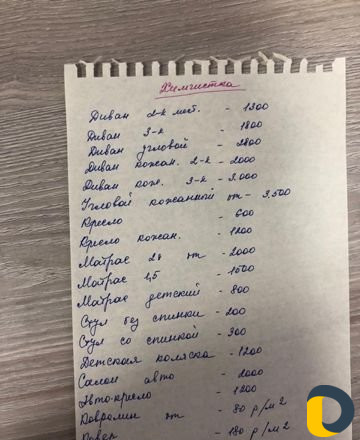 Химчистка
Диван 2-х мес. - 1300
Диван 3-х - 1800
Диван угловой - 2800
Диван кожан. 2-х - 2000
Диван кож. 3-х - 3.000
Угловой кожанный от - 3.500
Кресло - 600
Кресло кожан. - 1200
Матрас 2х от - 2000
Матрас 1,5 - 1500
Матрас детский - 800
Стул без спинки - 200
Стул со спинкой - 300
Детская коляска - 1200
Салон авто - 2000
Авто-кресло - 1200
Ковролин от - 80 р/м2
Ковёр - 180 р/м2